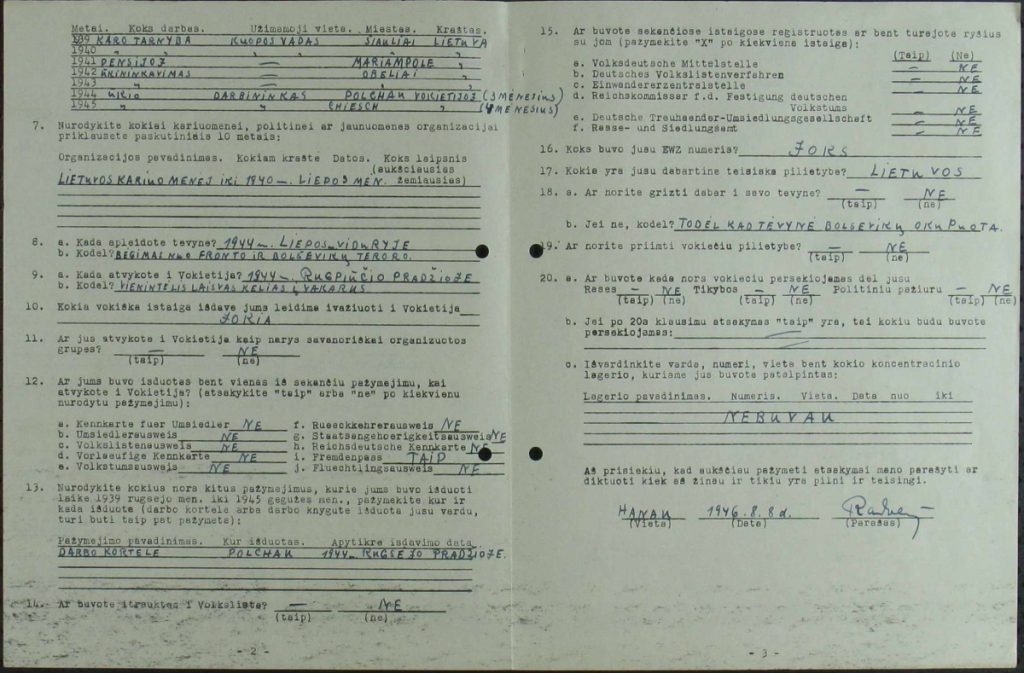 Metai. Koks darbas. Užimamoji vieta. Miestas. Kraštas.
1939 KARO TARNYBA KUOPOS VADAS ŠIAULIAI LIETUVA
1940 " " " "
1941 PENSIJOJ — MARIAMPOLE "
1942 ŪKININKAVIMAS — OBELIAI "
1943 " — " "
1944 ūkio DARBININKAS POLCHAU VOKIETIJOJ (3 MĖNESIUS)
1945 " " CHIESCH " (4 MĖNESIUS)
7. Nurodykite kokiai kariuomenei, politinei ar jaunuomenes organizacijai
priklausete paskutiniais 10 metais:
Organizacijos pavadinimas. Kokiam krašte Datos. Koks laipsnis
(aukščiausias
žemiausias)
LIETUVOS KARIUOMENEJ IKI 1940 —. LIEPOS MĖN.
8. a. Kada apleidote tevyne? 1944 m. LIEPOS VIDURYJE
b. Kodel? BĖGIMAS NUO FRONTO IR BOLŠEVIKŲ TERORO.
9. a. Kada atvykote i Vokietija? 1944 —. RUGPIŪČIO PRADŽIOJE
b. Kodel? VIENINTELIS LAISVAS KELIAS Į VAKARUS
10. Kokia vokiška istaiga išdave jums leidima ivažiuoti i Vokietija
JOKIA
11. Ar jus atvykote i Vokietija kaip narys savanoriškai organizuotos
grupes? — NE
(taip) (ne)
12. Ar jums buvo isduotas bent vienas iš sekančiu pažymejimu, kai
atvykote i Vokietija? (atsakykite "taip" arba "ne" po kiekvienu
nurodytu pažymejimu):
a. Kennkarte fuer Umsiedler NE
b. Umsiedlerausweis NE
c. Volkslistenausweis NE
d. Vorlaeufige Kennkarte NE
e. Volkstumsausweis NE
f. Rueckkehrerausweis NE
g. Staatsangehoerigkeitsausweis NE
h. Reichsdeutsche Kennkarte NE
i. Fremdenpass TAIP
j. Fluechtlingsausweis NE
13. Nurodykite kokius nors kitus pažymejimus, kurie jums buvo išduoti
laike 1939 rugsejo men. iki 1945 gegužes men., pažymekite kur ir
kada išduota (darbo kortele arba darbo knygute išduota jusu vardu,
turi buti taip pat pažymeta):
Pažymejimo pavadinimas. Kur išduotas. Apytikre isdavimo data
DARBO KORTELE POLCHAU 1944 — RUGSEJO PRADŽIOJE.
14. Ar buvote itrauktas i Volksliste? — NE
(taip) (ne)
- 2 -
15. Ar buvote sekančiose istaigose registruotas ar bent turejote ryšius
su jom (pažymekite "X" po kiekviena istaiga):
(Taip) (Ne)
a. Volksdeutsche Mittelstelle — NE
b. Deutsches Volkslistenverfahren — NE
c. Einwandererzentralstelle — NE
d. Reichskommissar f.d. Festigung deutschen
Volkstums — NE
e. Deutsche Treuhaender-Umsiedlungsgesellschaft — NE
f. Rasse- und Siedlungsamt — NE
16. Koks buvo jusu EWZ numeris? JOKS
17. Kokia yra jusu dabartine teisiska pilietybe? LIETUVOS
18. a. Ar norite grizti dabar i savo tevyne? — NE
(taip) (ne)
b. Jei ne, kodel? TODĖL KAD TĖVYNĖ BOLŠEVIKŲ OKUPUOTA.
19. Ar norite priimti vokiečiu pilietybe? — NE
(taip) (ne)
20. a. Ar buvote kada nors vokieciu persekiojamas del jusu
Rases — NE Tikybos — NE Politiniu pažiuru — NE
(taip) (ne) (taip) (ne) (taip) (ne)
b. Jei po 20a klausimu atsakymas "taip" yra, tai kokiu budu buvote
persekiojamas: —
c. Išvardinkite varda, numeri, vieta bent kokio koncentracinio
lagerio, kuriame jus buvote patalpintas:
Lagerio pavadinimas. Numeris. Vieta. Data nuo iki
NEBUVAU
Aš prisiekiu, kad aukščiau pažymeti atsakymai mano parašyti ar
diktuoti kiek aš žinau ir tikiu yra pilni ir teisingi.
HANAU 1946.8.8d.
(Vieta) (Data) (Parašas)
- 3 -